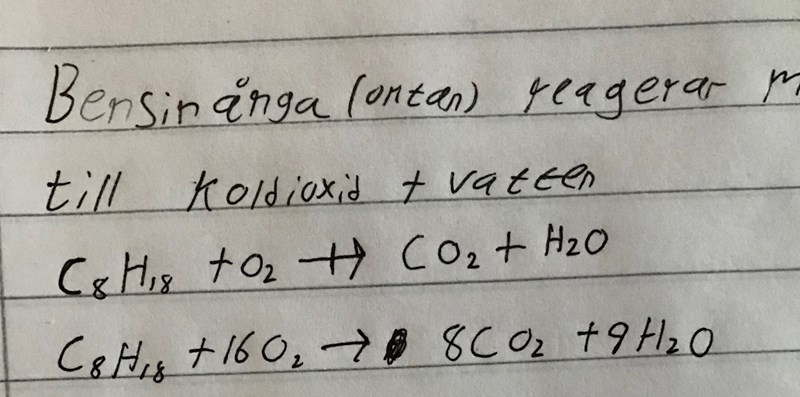 Bensinånga (ontan) reagerar m
till koldioxid + vatten
C₈H₁₈ + O₂ → CO₂ + H₂O
C₈H₁₈ + 16O₂ → 8CO₂ + 9H₂O